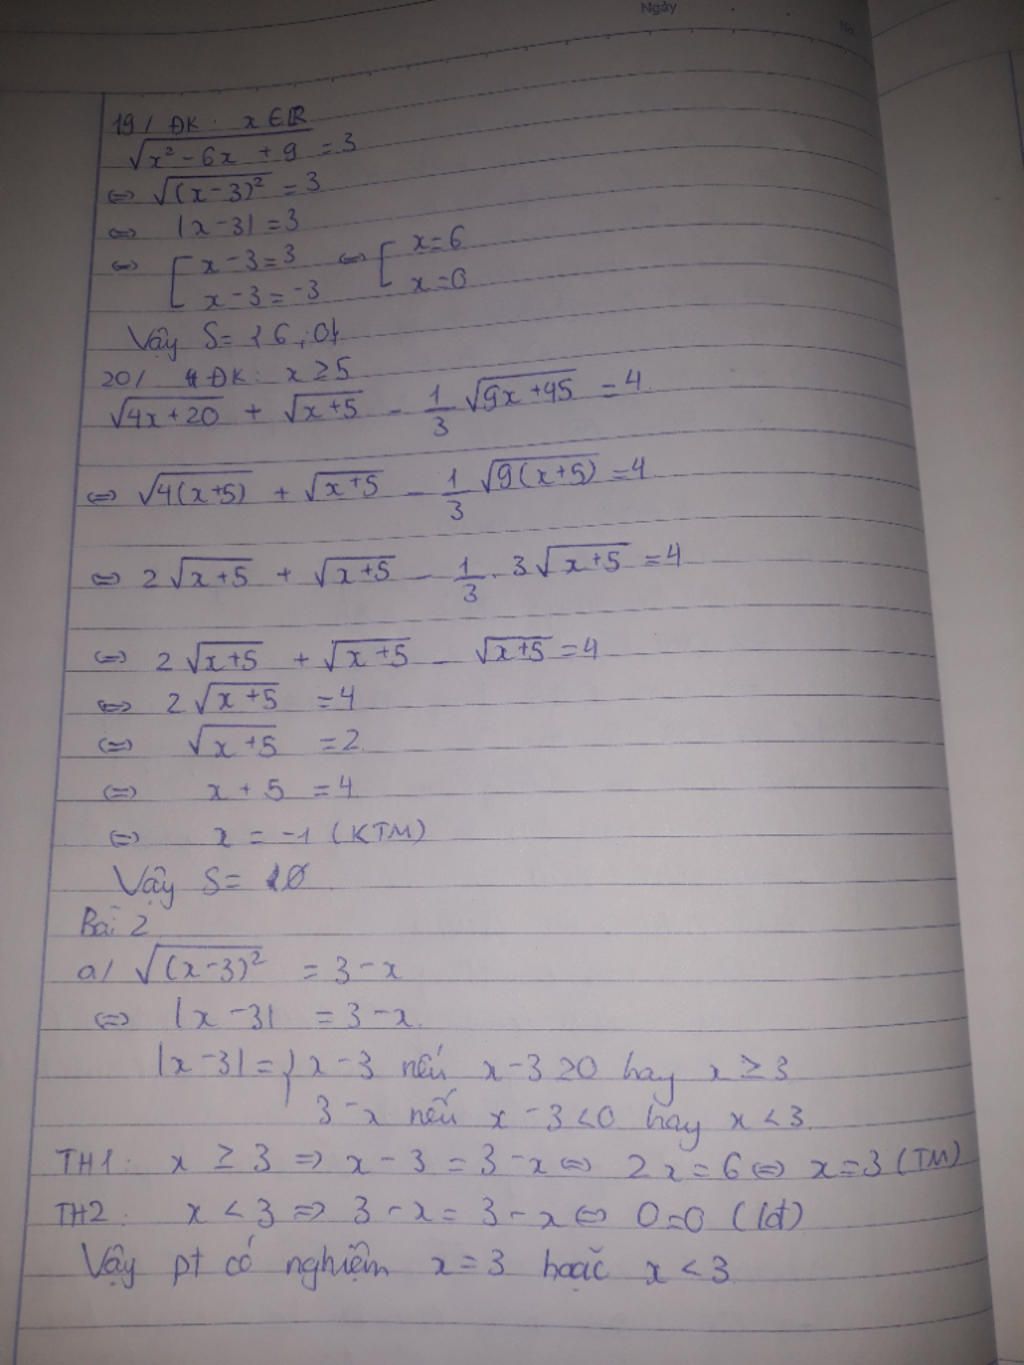 Ngày
No.
19/ ĐK: x ∈ ℝ
√(x² - 6x + 9) = 3
⇔ √((x-3)²) = 3
⇔ |x-3| = 3
⇔ [ x - 3 = 3 ⇔ [ x = 6
x - 3 = -3 x = 0
Vậy S = {6 ; 0}
20/ ĐK: x ≥ 5
√(4x+20) + √(x+5) - 1/3 √(9x+45) = 4
⇔ √(4(x+5)) + √(x+5) - 1/3 √(9(x+5)) = 4
⇔ 2√(x+5) + √(x+5) - 1/3 . 3√(x+5) = 4
⇔ 2√(x+5) + √(x+5) - √(x+5) = 4
⇔ 2√(x+5) = 4
⇔ √(x+5) = 2
⇔ x + 5 = 4
⇔ x = -1 (KTM)
Vậy S = Ø
Bài 2
a/ √((x-3)²) = 3 - x
⇔ |x - 3| = 3 - x
|x - 3| = { x - 3 nếu x - 3 ≥ 0 hay x ≥ 3
3 - x nếu x - 3 < 0 hay x < 3
TH1: x ≥ 3 ⇒ x - 3 = 3 - x ⇔ 2x = 6 ⇔ x = 3 (TM)
TH2: x < 3 ⇒ 3 - x = 3 - x ⇔ 0 = 0 (lđ)
Vậy pt có nghiệm x = 3 hoặc x < 3